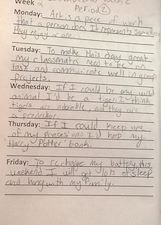 Week
Monday: Art is a piece of work
that a person does. It represents something
Tuesday: To make this day great
my classmates need to be on
task and communicate well in group
projects.
Wednesday: If I could be any wild
animal I'd be a tiger. I think
tigers are adorable and they are
a predator.
Thursday: If I could keep one
of my it'd be my
Harry Potter book.
Friday: To recharge my battery this
weekend I will get lots of sleep
and hang with my family.